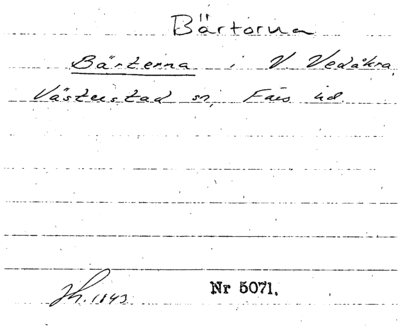 Bärtorna
Bärterna i V. Vedåkra,
Västerstad sn, Färs hd.
Jh. 1843 Nr 5071.